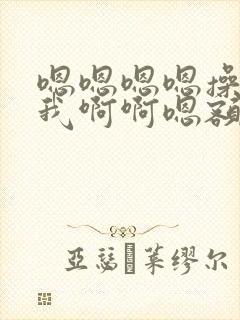 嗯嗯嗯嗯操
我啊啊嗯额
亚瑟 莱缪尔